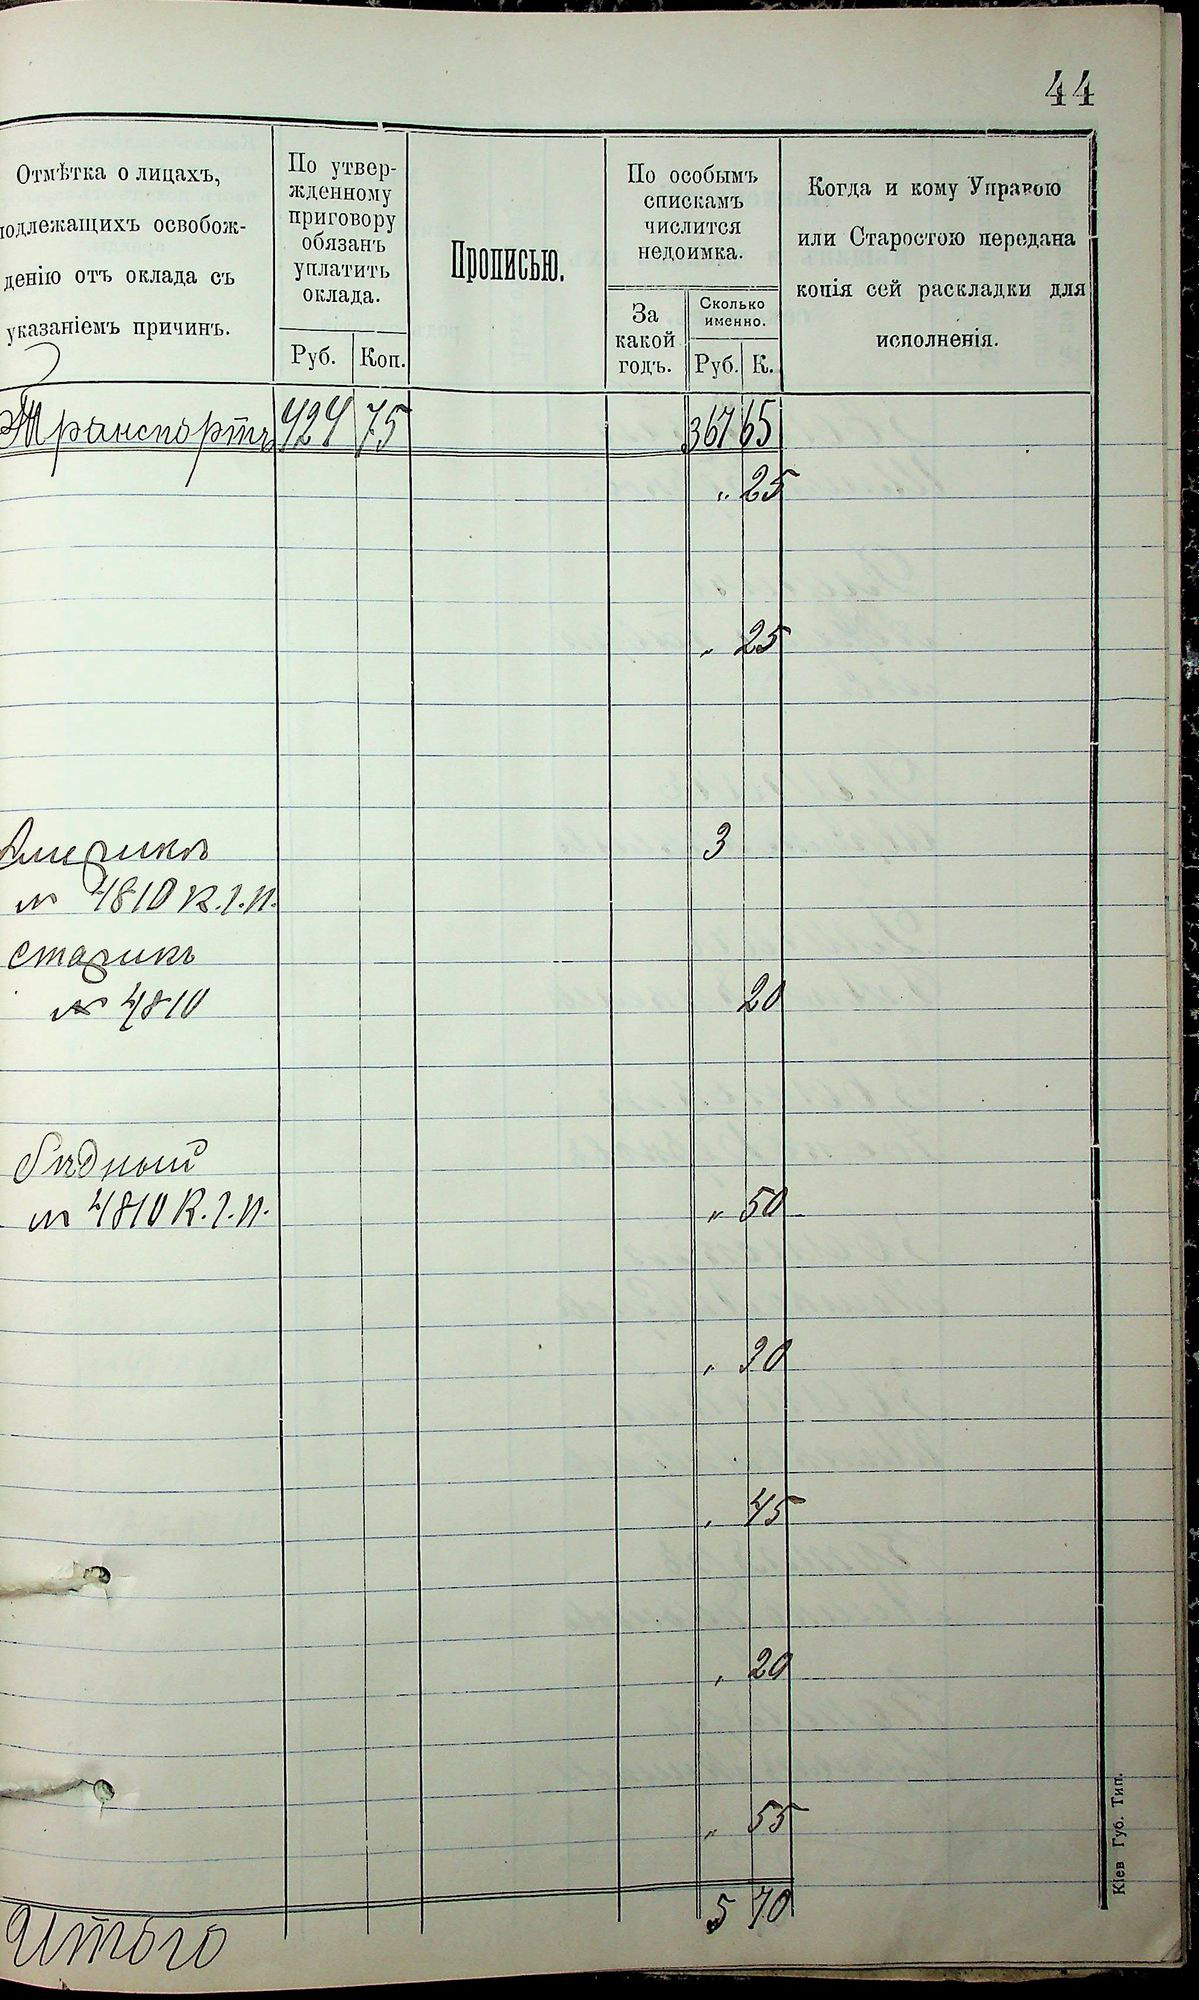 44
Отмѣтка о лицахъ,
подлежащихъ освобож-
денію отъ оклада съ
указаніемъ причинъ.
По утвер-
жденному
приговору
обязанъ
уплатить
оклада.
Руб. Коп.
Прописью.
По особымъ
спискамъ
числится
недоимка.
За
какой
годъ.
Сколько
именно.
Руб. К.
Когда и кому Управою
или Старостою передана
копія сей раскладки для
исполненія.
Транспортъ 424 75 367 65
" 25
" 25
3
№ 4810 К.г.п.
старикъ
№ 4810 20
бѣдный
№ 4810 К.г.п. " 50
" 30
" 45
" 20
" 55
Итого 5 70
Кіев Губ. Тип.